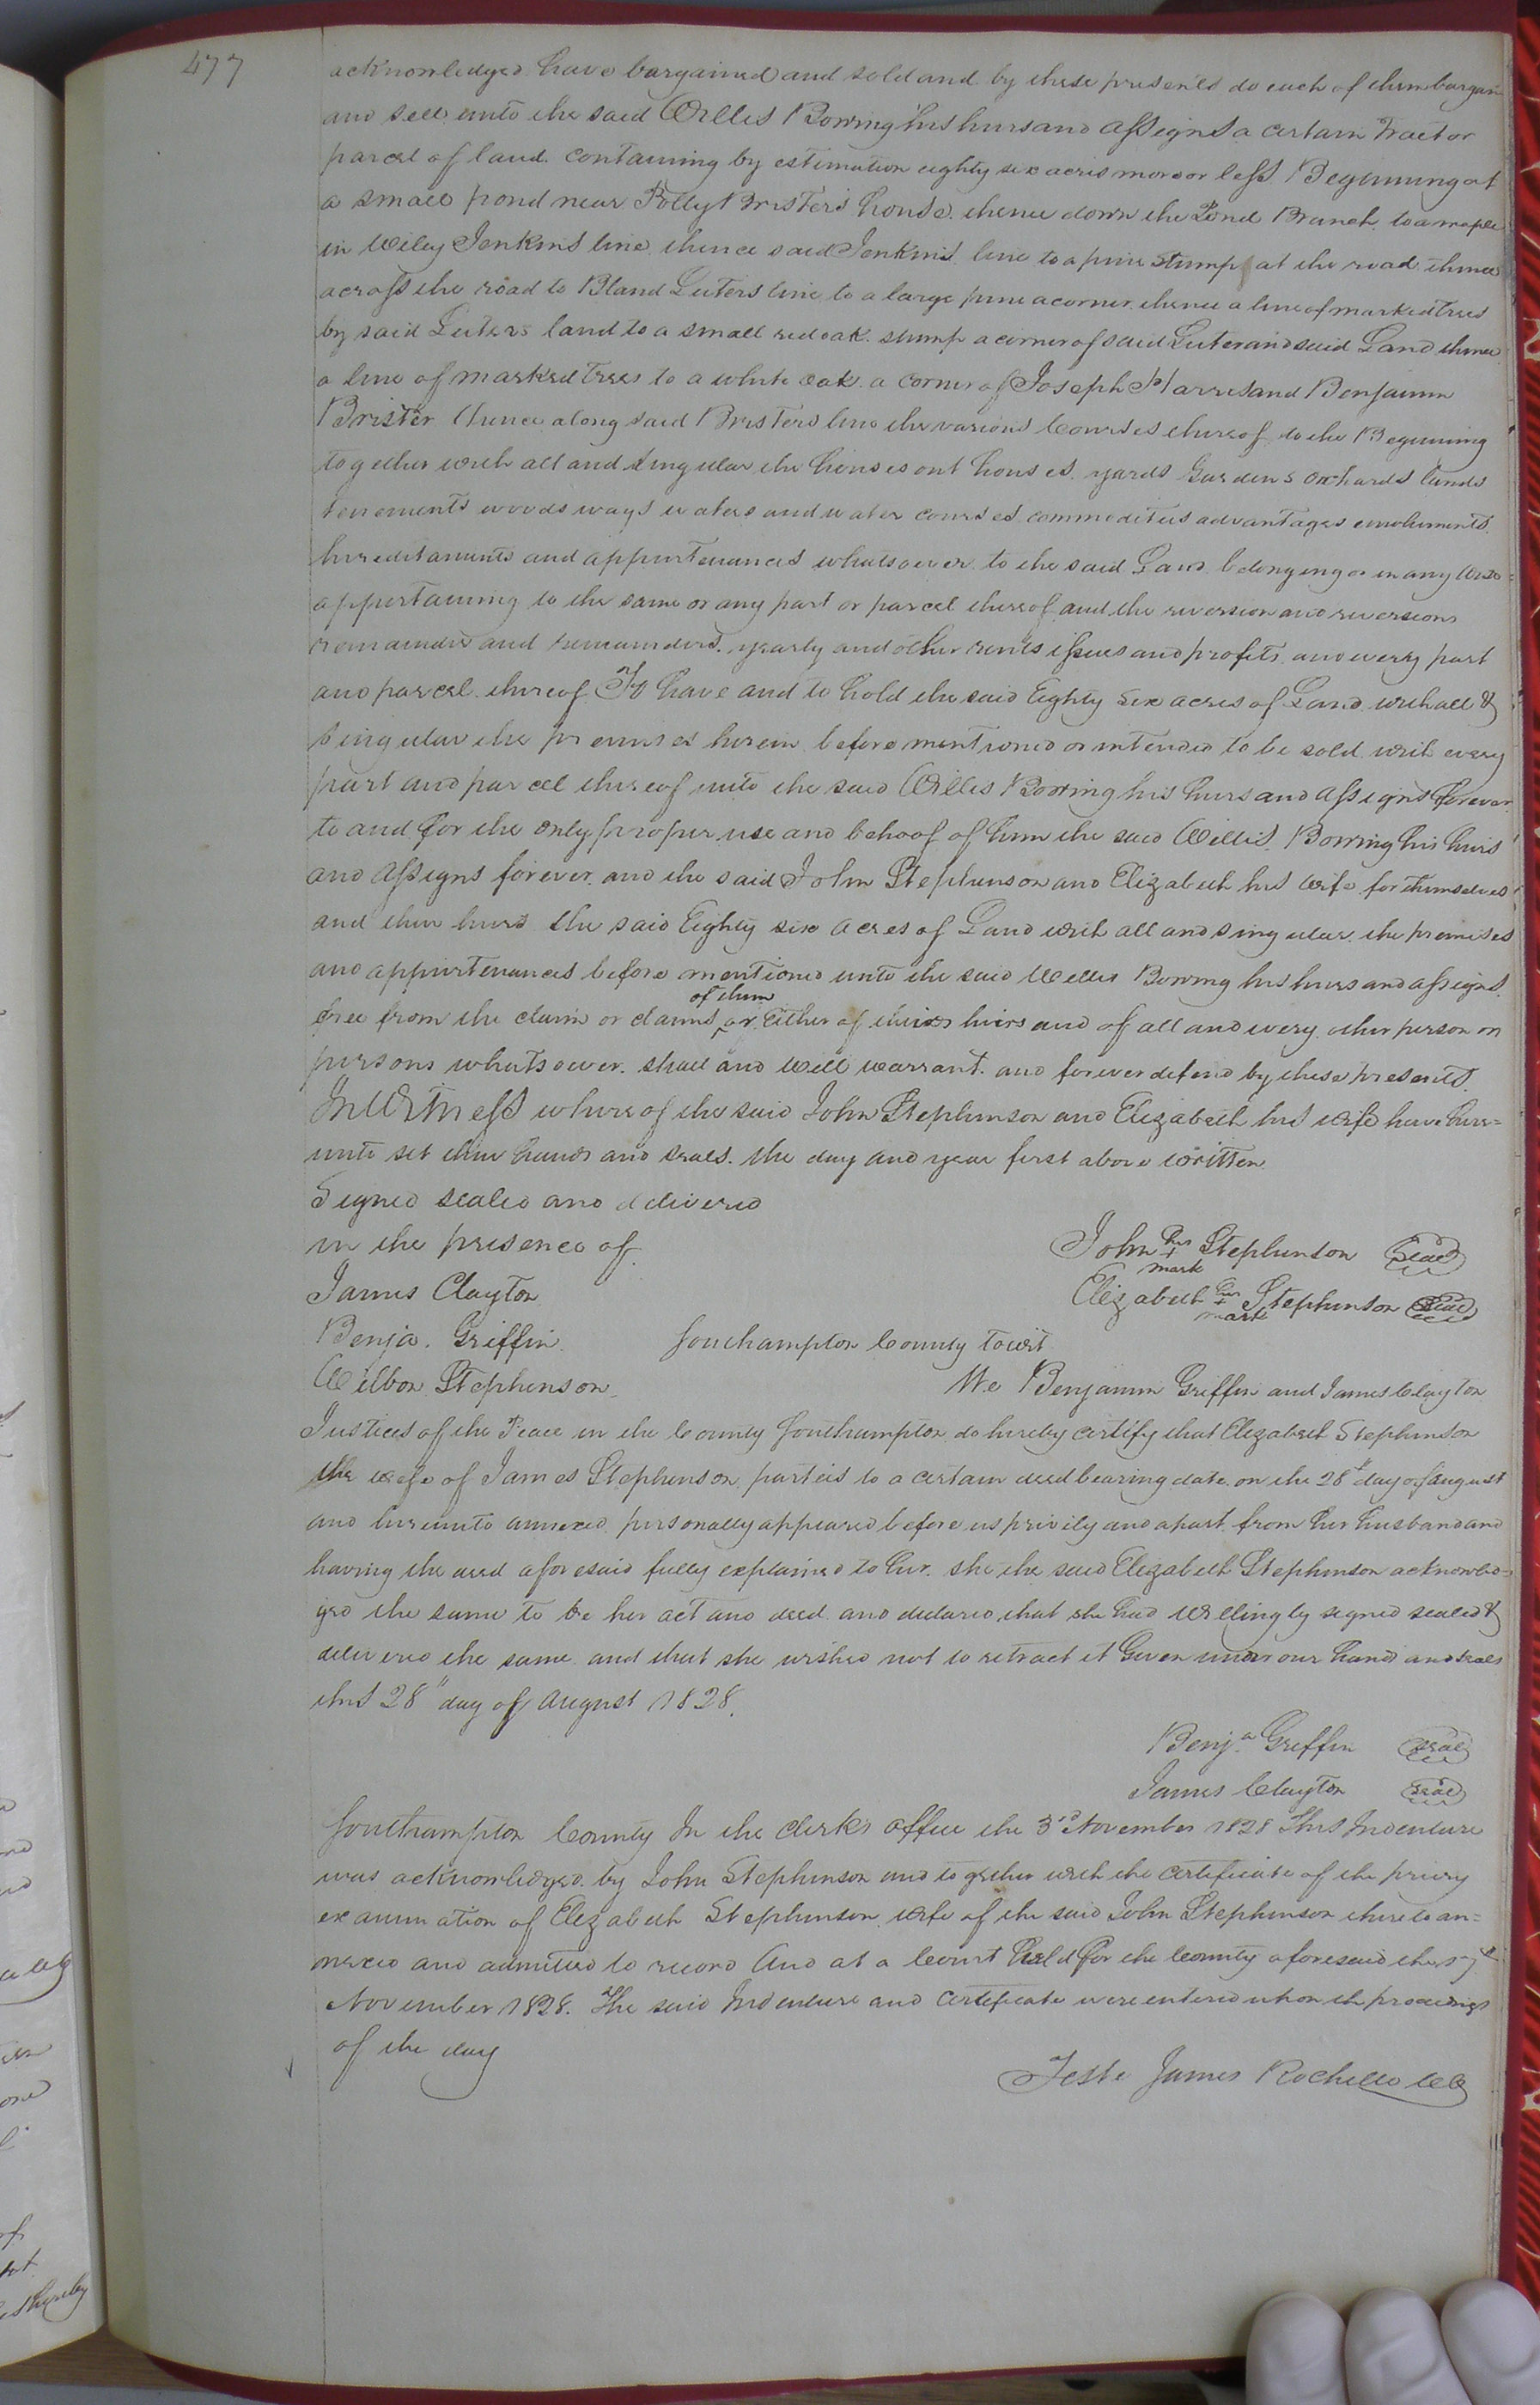 477
acknowledged have bargained and sold and by these presents do each of them bargain
and sell unto the said Willis Bowing his heirs and assigns a certain Tract or
parcel of land containing by estimation eighty six acres more or less Beginning at
a small pond near Polly Bristers house. thence down the Pond Branch to a maple
in Wiley Jenkins line thence said Jenkins line to a pine stump at the road thence
across the road to Bland Luters line to a large pine a corner. thence a line of marked trees
by said Luters land to a small red oak stump a corner of said Luter and said Land thence
a line of marked Trees to a white oak a corner of Joseph Harris and Benjamin
Brister Thence along said Bristers line the various Courses thereof to the Beginning
together with all and singular the houses out houses. yards Gardens orchards lands
tenements woods ways waters and water courses commodities advantages emoluments.
hereditaments and appurtenances whatsoever to the said Land belonging or in any wise
appertaining to the same or any part or parcel thereof and the reversion and reversions
remainder and remainders. yearly and other rents issues and profits and every part
and parcel thereof To have and to hold the said Eighty Six acres of Land with all &
singular the premises herein before mentioned or intended to be sold with every
part and parcel thereof unto the said Willis Bowing his heirs and assigns forever.
to and for the only proper use and behoof of him the said Willis Bowing his heirs
and assigns forever. and the said John Stephenson and Elizabeth his wife for themselves
and their heirs the said Eighty six acres of Land with all and singular the premises
and appurtenances before mentioned unto the said Willis Bowing his heirs and assigns.
free from the claim or claims of them or Either of their heirs and of all and every other person or
persons whatsoever. shall and will warrant and forever defend by these presents.
In Witness whereof the said John Stephenson and Elizabeth his wife have here=
unto set their hands and seals. the day and year first above written
Signed sealed and delivered
in the presence of.
John his + mark Stephenson seal
James Clayton
Elizabeth her + mark Stephenson seal
Benja. Griffin Southampton County towit
Wilbon Stephenson We Benjamin Griffin and James Clayton
Justices of the Peace in the County Southampton do hereby certify that Elizabeth Stephenson
the wife of James Stephenson parties to a certain deed bearing date on the 28th day of August
and hereunto annexed personally appeared before us privily and apart from her husband and
having the deed aforesaid fully explained to her. she the said Elizabeth Stephenson acknowled=
ged the same to be her act and deed and declared that she had willingly signed sealed &
delivered the same and that she wished not to retract it Given under our hands and seals
this 28th day of August 1828.
Benja Griffin seal
James Clayton seal
Southampton County In the Clerks office the 3rd November 1828 This Indenture
was acknowledged by John Stephenson and together with the certificate of the privy
examination of Elizabeth Stephenson wife of the said John Stephenson thereto an=
nexed and admitted to record And at a Court Held for the County aforesaid the 17th
November 1828. The said Indenture and certificate were entered upon the proceedings
of the day
Teste James Rochelle CC